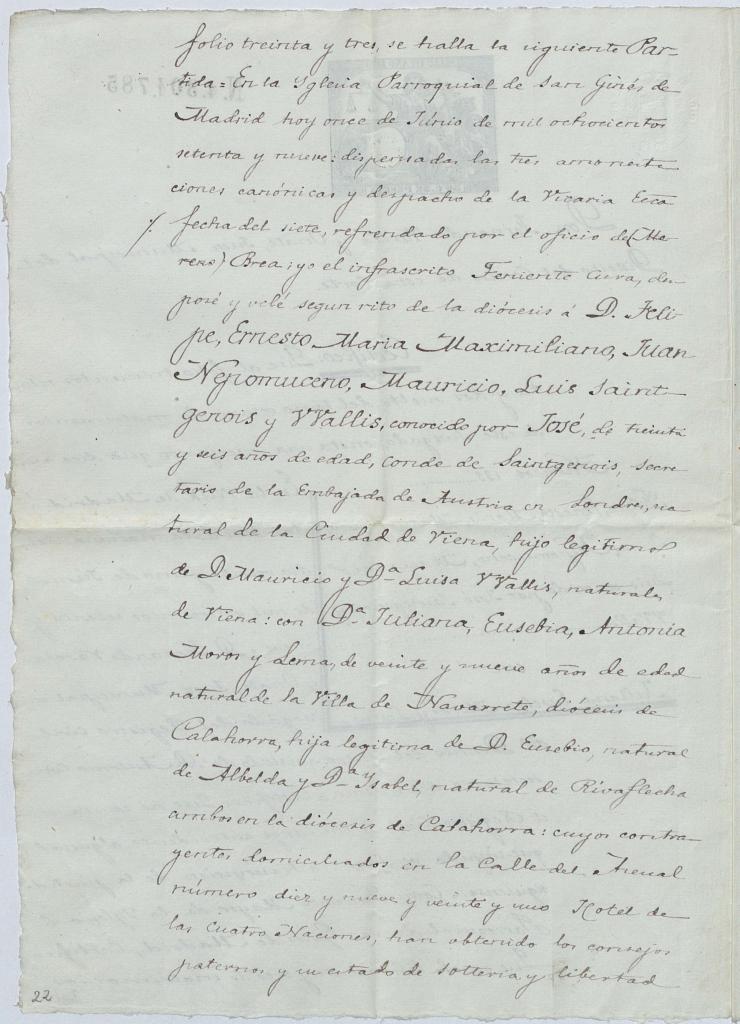 folio treinta y tres, se halla la siguiente Par-
tida = En la Yglesia Parroquial de San Ginés de
Madrid hoy once de Júnio de mil ochocientos
setenta y nueve: dispensadas las tres amoneste
ciones canónicas y despacho de la Vicaria Ecca
fecha del siete, refrendado por el oficio de (Me
reno) Brea; yo el infrascrito Teniente Cura, des
posé y velé segun rito de la diócesis á D. Feli-
pe, Ernesto, Maria Maximiliano, Juan
Nepomuceno, Mauricio, Luis Saint-
genois y VVallis, conocido por José, de treinta
y seis años de edad, Conde de Saintgenois, Secre
tario de la Embajada de Austria en Londres, na
tural de la Ciudad de Viena, hijo legitimo
de D. Mauricio y Dª Luisa VVallis, naturales
de Viena: con Dª Juliana, Eusebia, Antonia
Moron y Lerna, de veinte y nueve años de edad
natural de la Villa de Navarrete, diócesis de
Calahorra, hija legitima de D. Eusebio, natural
de Albelda y Dª Ysabel, natural de Rivaflecha
ambos en la diócesis de Calahorra: cuyos contra
yentes domiciliados en la Calle del Arenal
número diez y nueve y veinte y uno Hotel de
las Cuatro Naciones, han obtenido los consejos
paternos y su estado de solteria y libertad
22